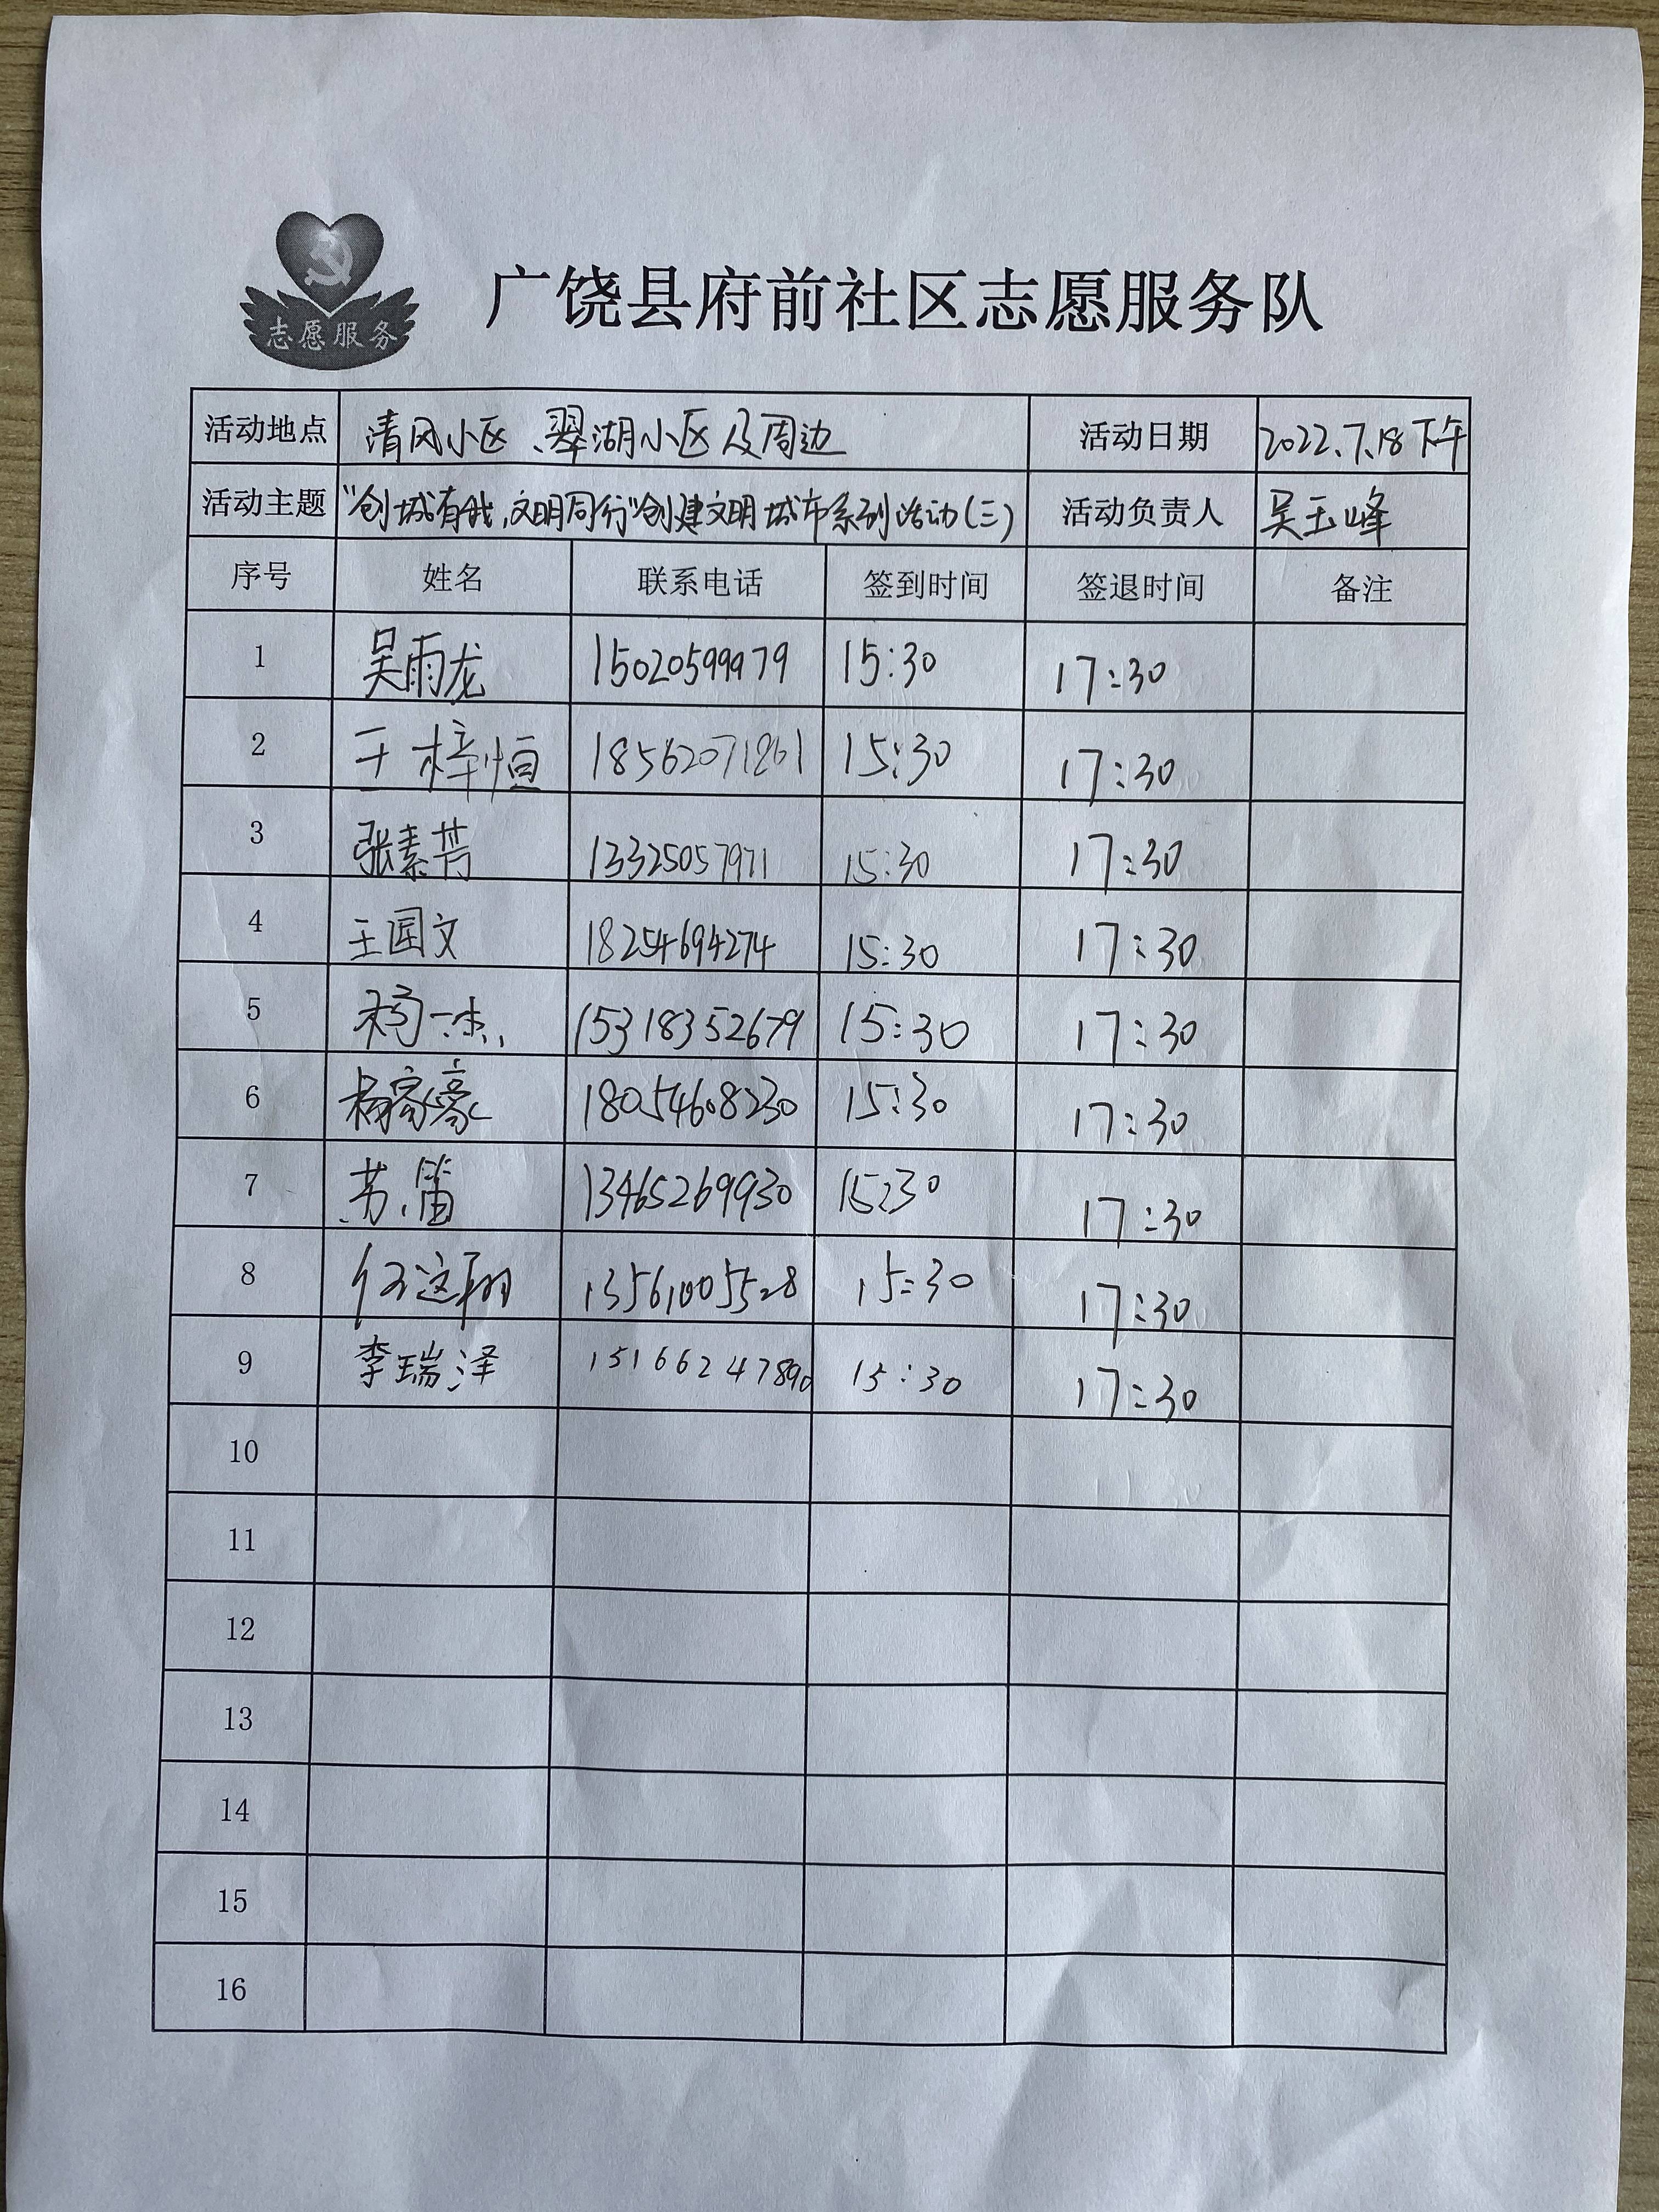 志愿服务
广饶县府前社区志愿服务队
活动地点 清风小区、翠湖小区及周边 活动日期 2022.7.18下午
活动主题 "创城有我,文明同行"创建文明城市系列活动(三) 活动负责人 吴玉峰
序号 姓名 联系电话 签到时间 签退时间 备注
1 吴雨龙 15020599979 15:30 17:30
2 王梓恒 18562071261 15:30 17:30
3 张素芳 13325057971 15:30 17:30
4 王国文 18254694274 15:30 17:30
5 杨一杰 15318352679 15:30 17:30
6 杨家豪 18054608230 15:30 17:30
7 苏笛 13465269930 15:30 17:30
8 13561005528 15:30 17:30
9 李瑞泽 15166247890 15:30 17:30
10
11
12
13
14
15
16